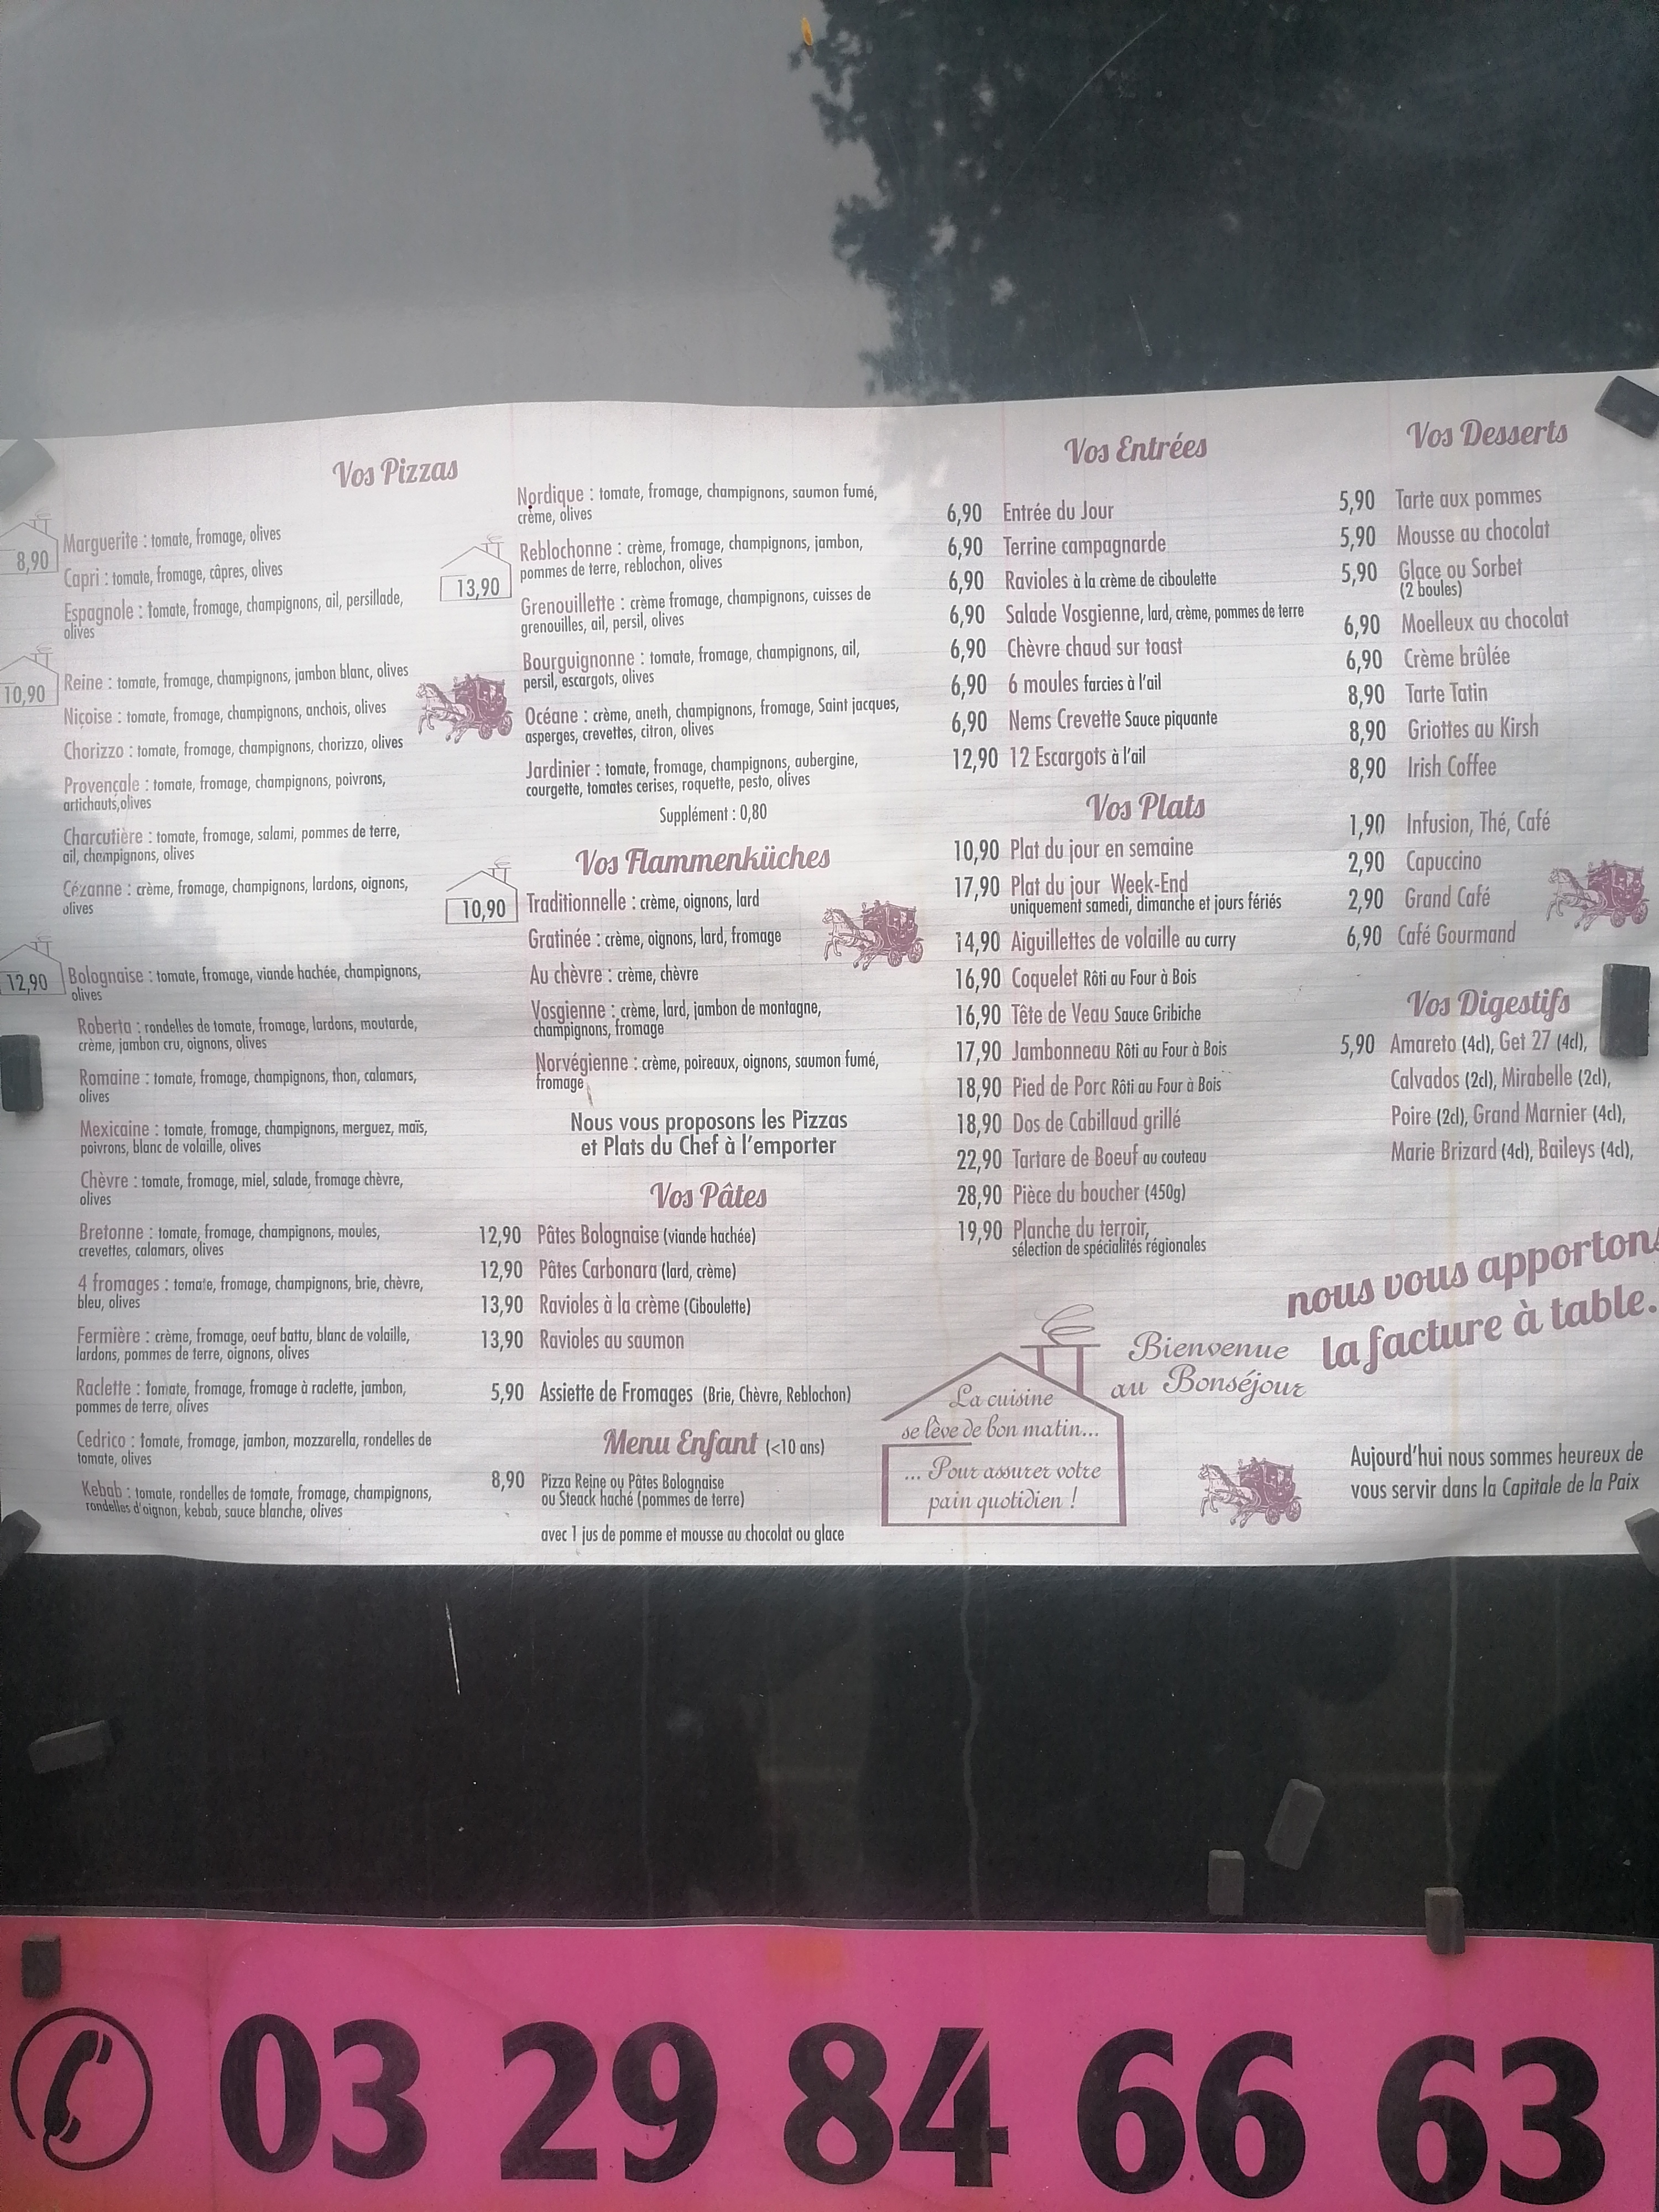 Vos Pizzas
8,90
Marguerite : tomate, fromage, olives
Capri : tomate, fromage, câpres, olives
Espagnole : tomate, fromage, champignons, ail, persillade,
olives
10,90
Reine : tomate, fromage, champignons, jambon blanc, olives
Niçoise : tomate, fromage, champignons, anchois, olives
Chorizzo : tomate, fromage, champignons, chorizzo, olives
Provençale : tomate, fromage, champignons, poivrons,
artichauts,olives
Charcutière : tomate, fromage, salami, pommes de terre,
ail, champignons, olives
Cézanne : crème, fromage, champignons, lardons, oignons,
olives
12,90
Bolognaise : tomate, fromage, viande hachée, champignons,
olives
Roberta : rondelles de tomate, fromage, lardons, moutarde,
crème, jambon cru, oignons, olives
Romaine : tomate, fromage, champignons, thon, calamars,
olives
Mexicaine : tomate, fromage, champignons, merguez, maïs,
poivrons, blanc de volaille, olives
Chèvre : tomate, fromage, miel, salade, fromage chèvre,
olives
Bretonne : tomate, fromage, champignons, moules,
crevettes, calamars, olives
4 fromages : tomate, fromage, champignons, brie, chèvre,
bleu, olives
Fermière : crème, fromage, oeuf battu, blanc de volaille,
lardons, pommes de terre, oignons, olives
Raclette : tomate, fromage, fromage à raclette, jambon,
pommes de terre, olives
Cedrico : tomate, fromage, jambon, mozzarella, rondelles de
tomate, olives
Kebab : tomate, rondelles de tomate, fromage, champignons,
rondelles d'oignon, kebab, sauce blanche, olives
Nordique : tomate, fromage, champignons, saumon fumé,
crème, olives
13,90
Reblochonne : crème, fromage, champignons, jambon,
pommes de terre, reblochon, olives
Grenouillette : crème fromage, champignons, cuisses de
grenouilles, ail, persil, olives
Bourguignonne : tomate, fromage, champignons, ail,
persil, escargots, olives
Océane : crème, aneth, champignons, fromage, Saint jacques,
asperges, crevettes, citron, olives
Jardinier : tomate, fromage, champignons, aubergine,
courgette, tomates cerises, roquette, pesto, olives
Supplément : 0,80
Vos Flammenküches
10,90
Traditionnelle : crème, oignons, lard
Gratinée : crème, oignons, lard, fromage
Au chèvre : crème, chèvre
Vosgienne : crème, lard, jambon de montagne,
champignons, fromage
Norvégienne : crème, poireaux, oignons, saumon fumé,
fromage
Nous vous proposons les Pizzas
et Plats du Chef à l'emporter
Vos Pâtes
12,90 Pâtes Bolognaise (viande hachée)
12,90 Pâtes Carbonara (lard, crème)
13,90 Ravioles à la crème (Ciboulette)
13,90 Ravioles au saumon
5,90 Assiette de Fromages (Brie, Chèvre, Reblochon)
Menu Enfant (<10 ans)
8,90 Pizza Reine ou Pâtes Bolognaise
ou Steack haché (pommes de terre)
avec 1 jus de pomme et mousse au chocolat ou glace
Vos Entrées
6,90 Entrée du Jour
6,90 Terrine campagnarde
6,90 Ravioles à la crème de ciboulette
6,90 Salade Vosgienne, lard, crème, pommes de terre
6,90 Chèvre chaud sur toast
6,90 6 moules farcies à l'ail
6,90 Nems Crevette Sauce piquante
12,90 12 Escargots à l'ail
Vos Plats
10,90 Plat du jour en semaine
17,90 Plat du jour Week-End
uniquement samedi, dimanche et jours fériés
14,90 Aiguillettes de volaille au curry
16,90 Coquelet Rôti au Four à Bois
16,90 Tête de Veau Sauce Gribiche
17,90 Jambonneau Rôti au Four à Bois
18,90 Pied de Porc Rôti au Four à Bois
18,90 Dos de Cabillaud grillé
22,90 Tartare de Boeuf au couteau
28,90 Pièce du boucher (450g)
19,90 Planche du terroir,
sélection de spécialités régionales
La cuisine
se lève de bon matin...
... Pour assurer votre
pain quotidien !
Bienvenue
au Bonséjour
Vos Desserts
5,90 Tarte aux pommes
5,90 Mousse au chocolat
5,90 Glace ou Sorbet
(2 boules)
6,90 Moelleux au chocolat
6,90 Crème brûlée
8,90 Tarte Tatin
8,90 Griottes au Kirsh
8,90 Irish Coffee
1,90 Infusion, Thé, Café
2,90 Capuccino
2,90 Grand Café
6,90 Café Gourmand
Vos Digestifs
5,90 Amareto (4cl), Get 27 (4cl),
Calvados (2cl), Mirabelle (2cl),
Poire (2cl), Grand Marnier (4cl),
Marie Brizard (4cl), Baileys (4cl),
nous vous apportons
la facture à table.
Aujourd'hui nous sommes heureux de
vous servir dans la Capitale de la Paix
03 29 84 66 63